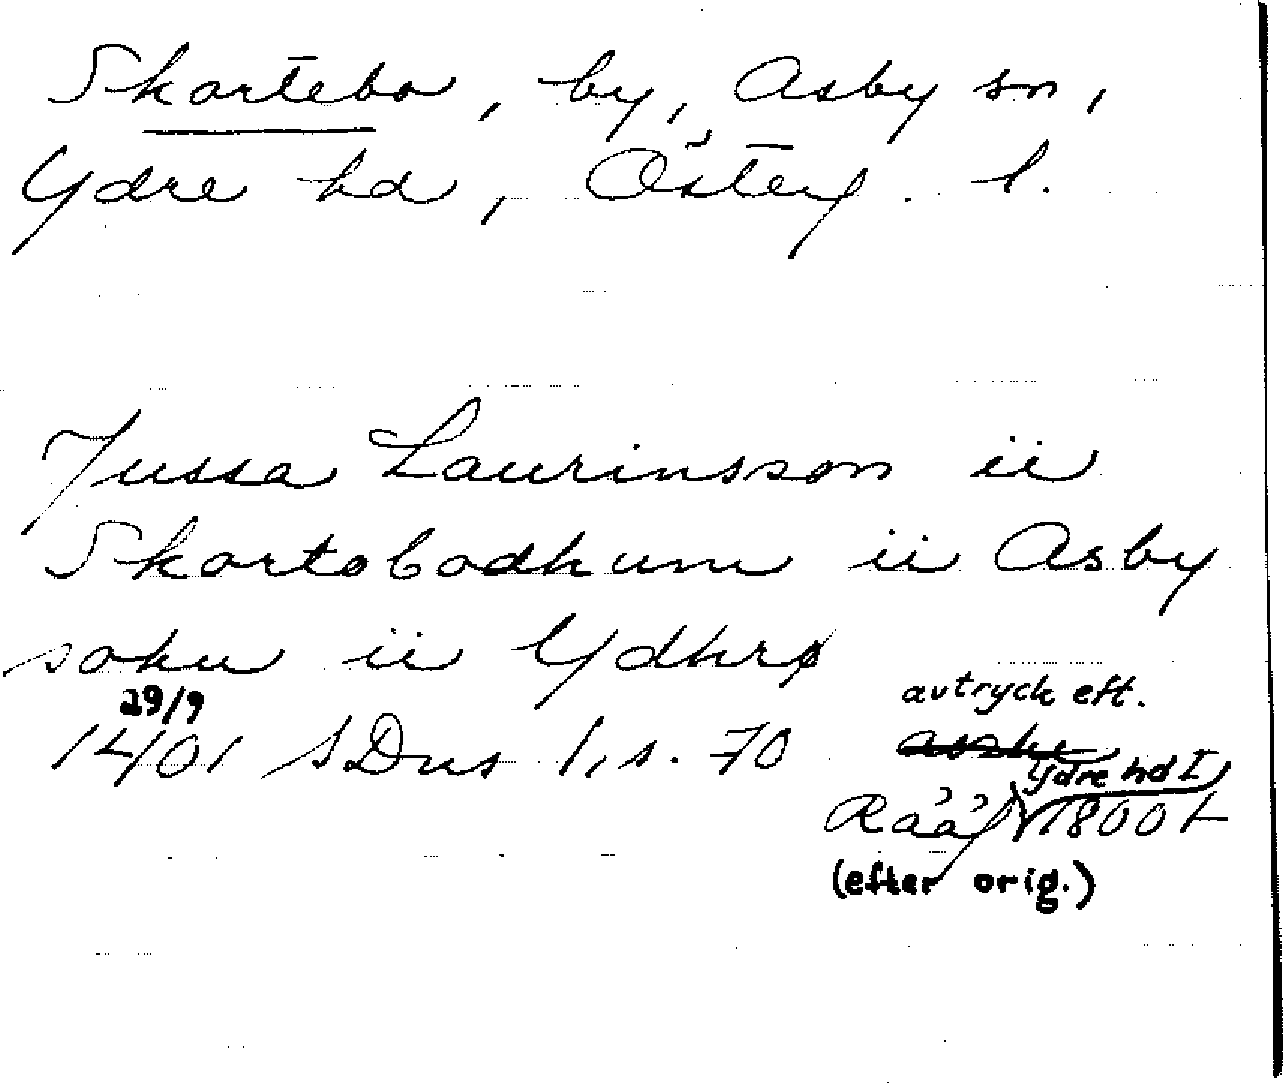 Skortebo, by, Asby sn,
Ydre hd, Österg. l.
Jussa Laurinsson ii
Skortobodhum ii Asby
sokn ii Ydhrø
29/9
14/01 SDns 1, s. 70
avtryck eft.
Ydre hd I
Rääf 1800 t
(efter orig.)